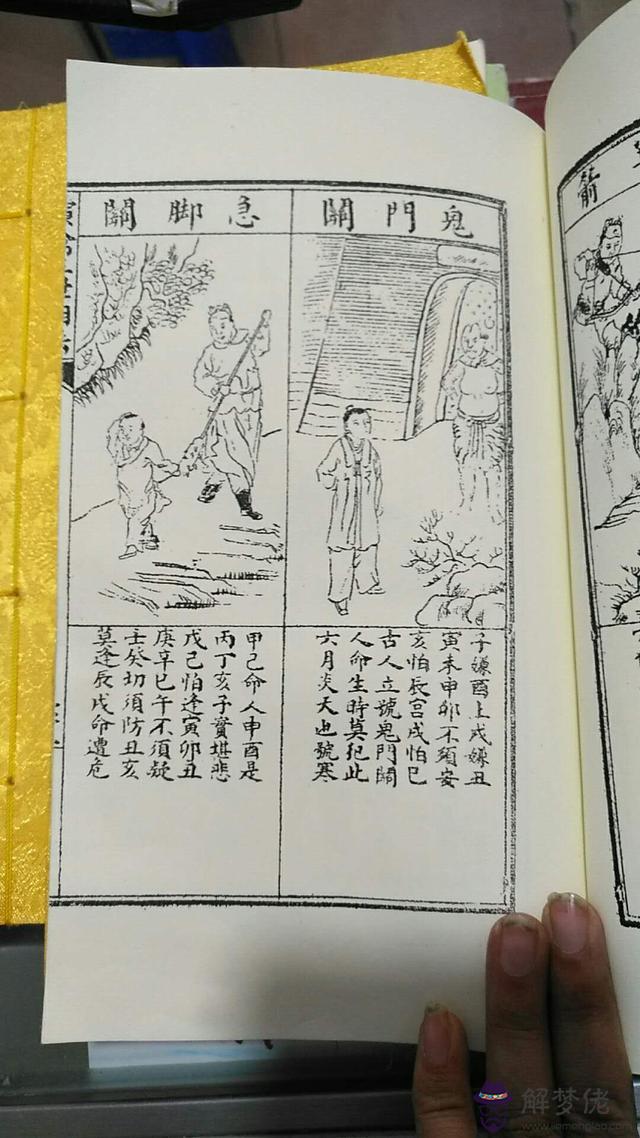 箭
鬼門關
子嫌酉上戌嫌丑
寅未申卯不須安
亥怕辰宮戌怕巳
古人立號鬼門關
人命生時莫犯此
六月炎天也號寒
急脚關
甲己命人申酉是
丙丁亥子實堪悲
戊己怕逢寅卯丑
庚辛巳午不須疑
壬癸切須防丑亥
莫逢辰戌命遭危
解梦佬
www.jiemenglao.com